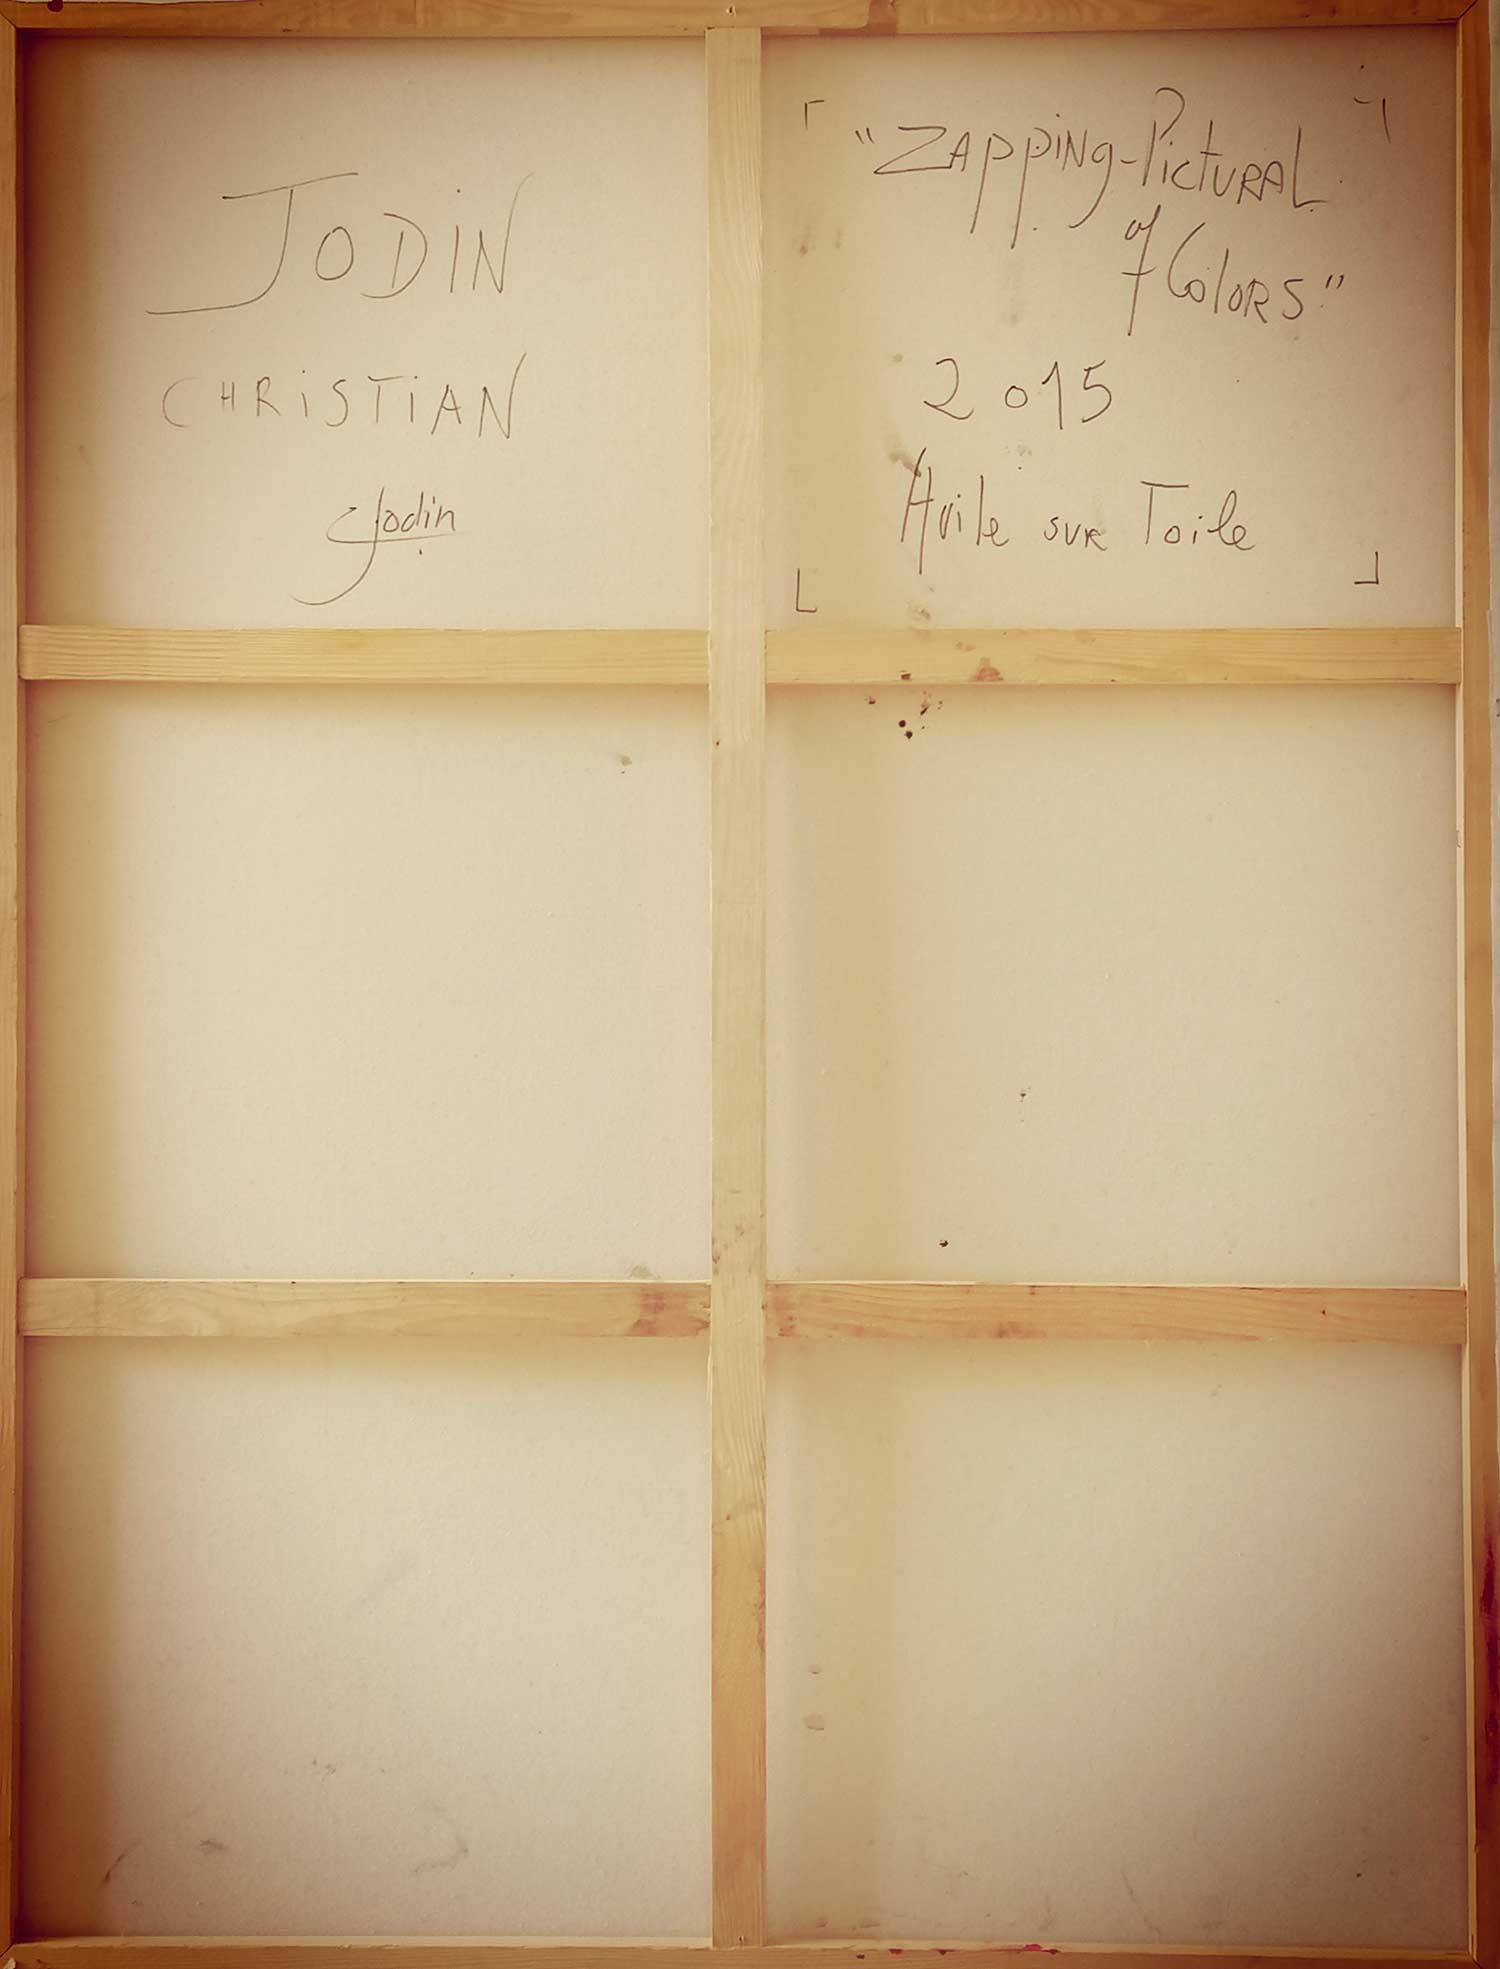 JODIN
CHRISTIAN
Jodin
"ZAPPING-PICTURAL
of Colors"
2015
Huile sur Toile